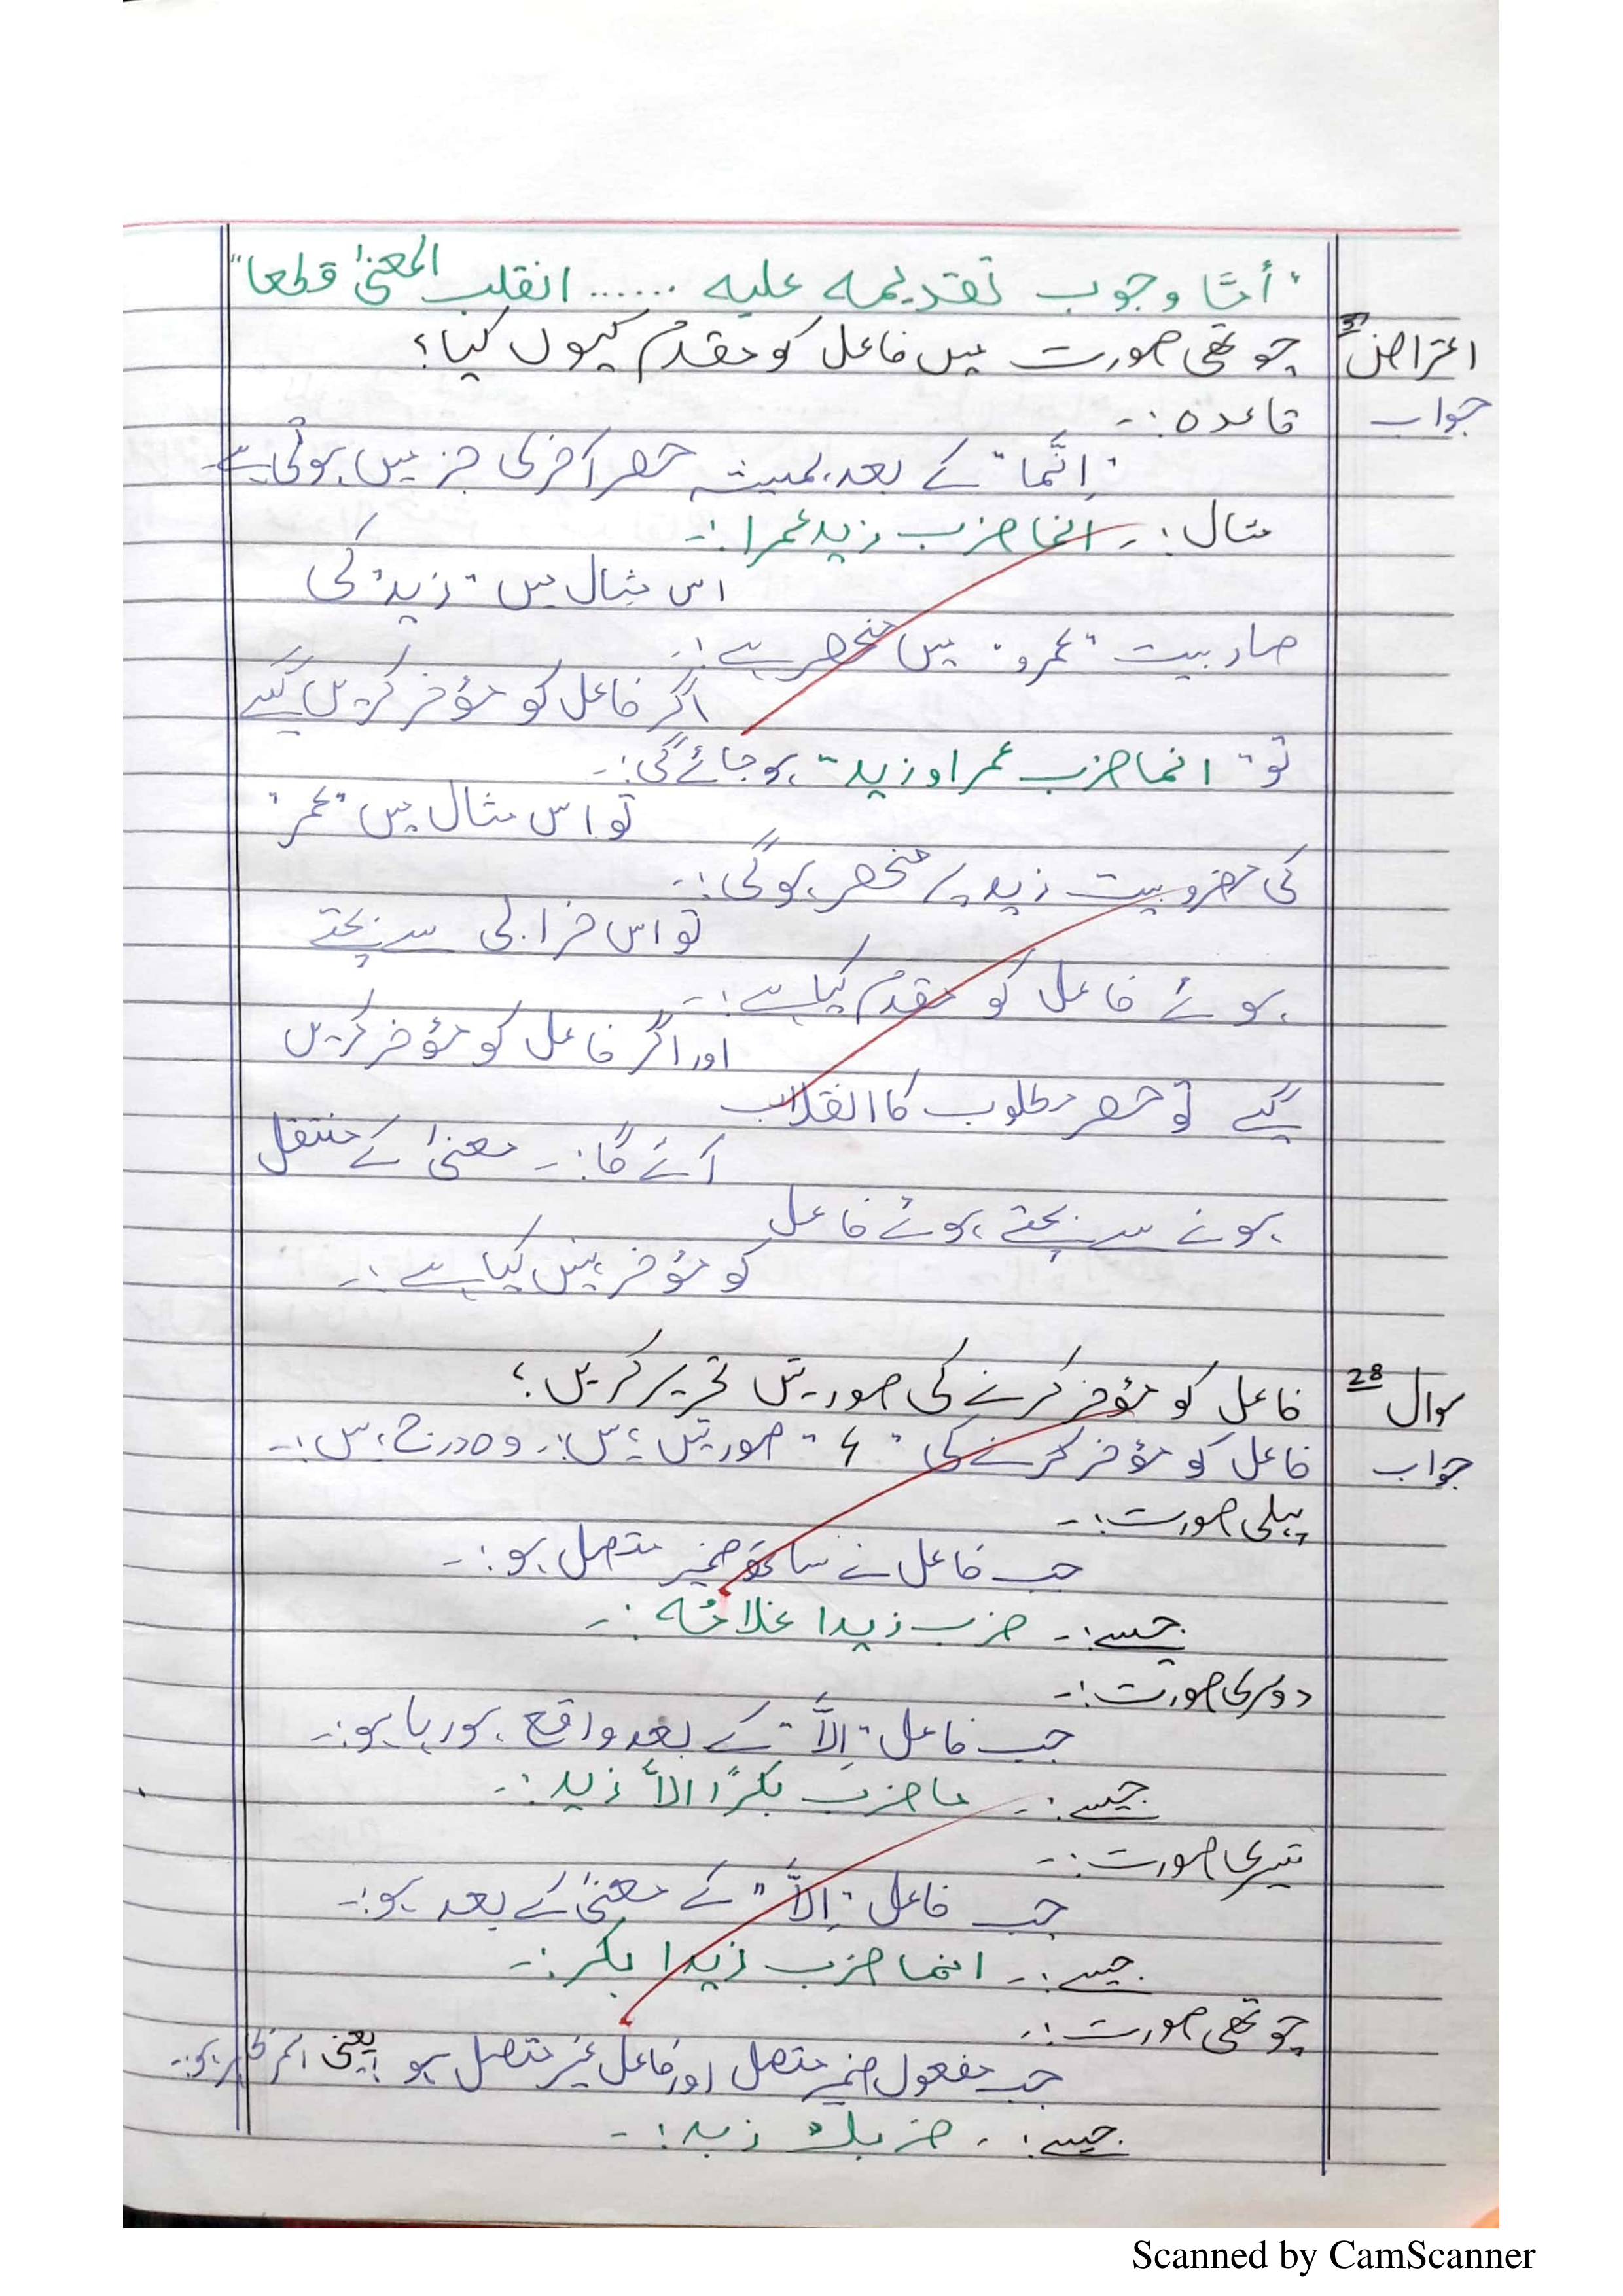 "أمّا وجوب تقديمه عليه ...... انقلب المعنیٰ قطعا"
اعتراض چوتھی صورت میں فاعل کو مقدم کیوں کیا؟
جواب قاعدہ:۔
"اِنَّما" کے بعد ہمیشہ حصر آخری جز میں ہوتی ہے
مثال:۔ انما ضرب زید عمرا:۔
اس مثال میں "زید" کی
ضاربیت "عمرو" میں منحصر ہے:۔
اگر فاعل کو مؤخر کریں گے
تو "انما ضرب عمرا و زید" ہو جائے گی:۔
تو اس مثال میں "عمر"
کی مضروبیت زید پر منحصر ہو گی:۔
تو اس خرابی سے بچتے
ہوئے فاعل کو مقدم کیا ہے:۔
اور اگر فاعل کو مؤخر کریں
گے تو حصر مطلوب کا انقلاب
آئے گا:۔ معنیٰ کے منتقل
ہونے سے بچتے ہوئے فاعل
کو مؤخر نہیں کیا ہے:۔
سوال 28 فاعل کو مؤخر کرنے کی صورتیں تحریر کریں؟
جواب فاعل کو مؤخر کرنے کی "4" صورتیں ہیں:۔ وہ درج ہیں:۔
پہلی صورت:۔
جب فاعل نے ساتھ ضمیر متصل ہو:۔
جیسے:۔ ضرب زیدا غلامُه:۔
دوسری صورت:۔
جب فاعل "اِلَّا" کے بعد واقع ہو رہا ہو:۔
جیسے:۔ ما ضرب بکرًا الّا زید:۔
تیسری صورت:۔
جب فاعل "اِلَّا" کے معنیٰ کے بعد ہو:۔
جیسے:۔ انما ضرب زیدا بکر:۔
چوتھی صورت:۔
جب مفعول ضمیر متصل اور فاعل غیر متصل ہو یعنی اسم ظاہر ہو:۔
جیسے:۔ ضربك زید:۔
Scanned by CamScanner